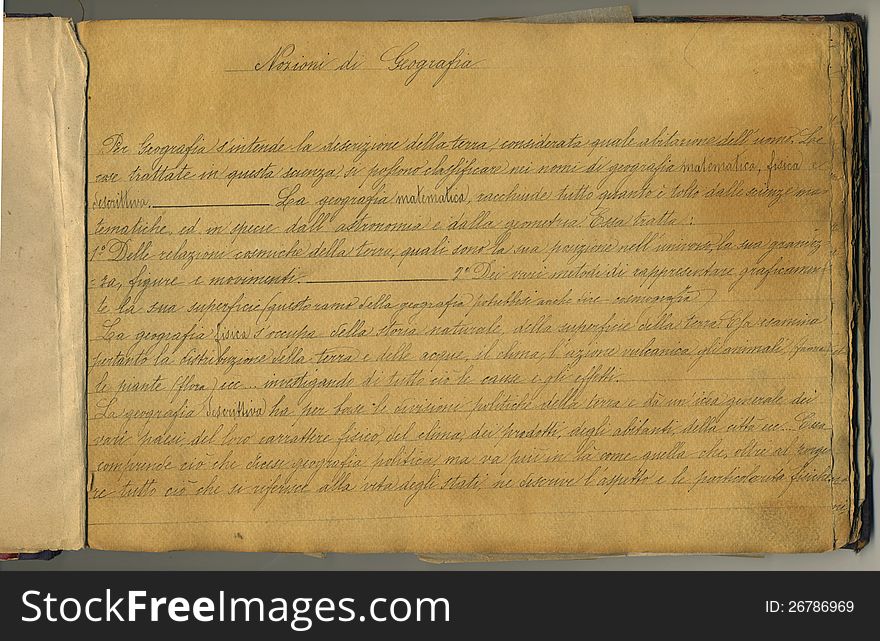 Nozioni di Geografia
Per Geografia s'intende la descrizione della terra, considerata quale abitazione dell'uomo. Le
cose trattate in questa scienza, si possono classificare nei nomi di geografia matematica, fisica e
descrittiva. La geografia matematica, racchiude tutto quanto è tolto dalle scienze ma-
tematiche, ed in specie dall'astronomia e dalla geometria. Essa tratta:
1° Delle relazioni cosmiche della terra, quali sono la sua posizione nell'universo, la sua grandez-
=za, figure e movimenti. 2° Dei vari metodi di rappresentare graficamen-
te la sua superficie (questo ramo della geografia potrebbesi anche dire cosmografia)
La geografia fisica s'occupa della storia naturale, della superficie della terra. Essa esamina
pertanto la distribuzione della terra e delle acque, il clima, l'azione vulcanica gli animali (fauna)
le piante (flora) ecc... investigando di tutto ciò le cause e gli effetti.
La geografia descrittiva ha per base le divisioni politiche della terra e dà un'idea generale dei
vari paesi del loro carrattere fisico, del clima, dei prodotti, degli abitanti, della città ecc... Essa
comprende ciò che dicesi geografia politica, ma va più in là come quella che, oltre al porge-
re tutto ciò che si riferisce alla vita degli stati, ne descrive l'aspetto e le particolarità fisiche
StockFreeImages.com
ID: 26786969